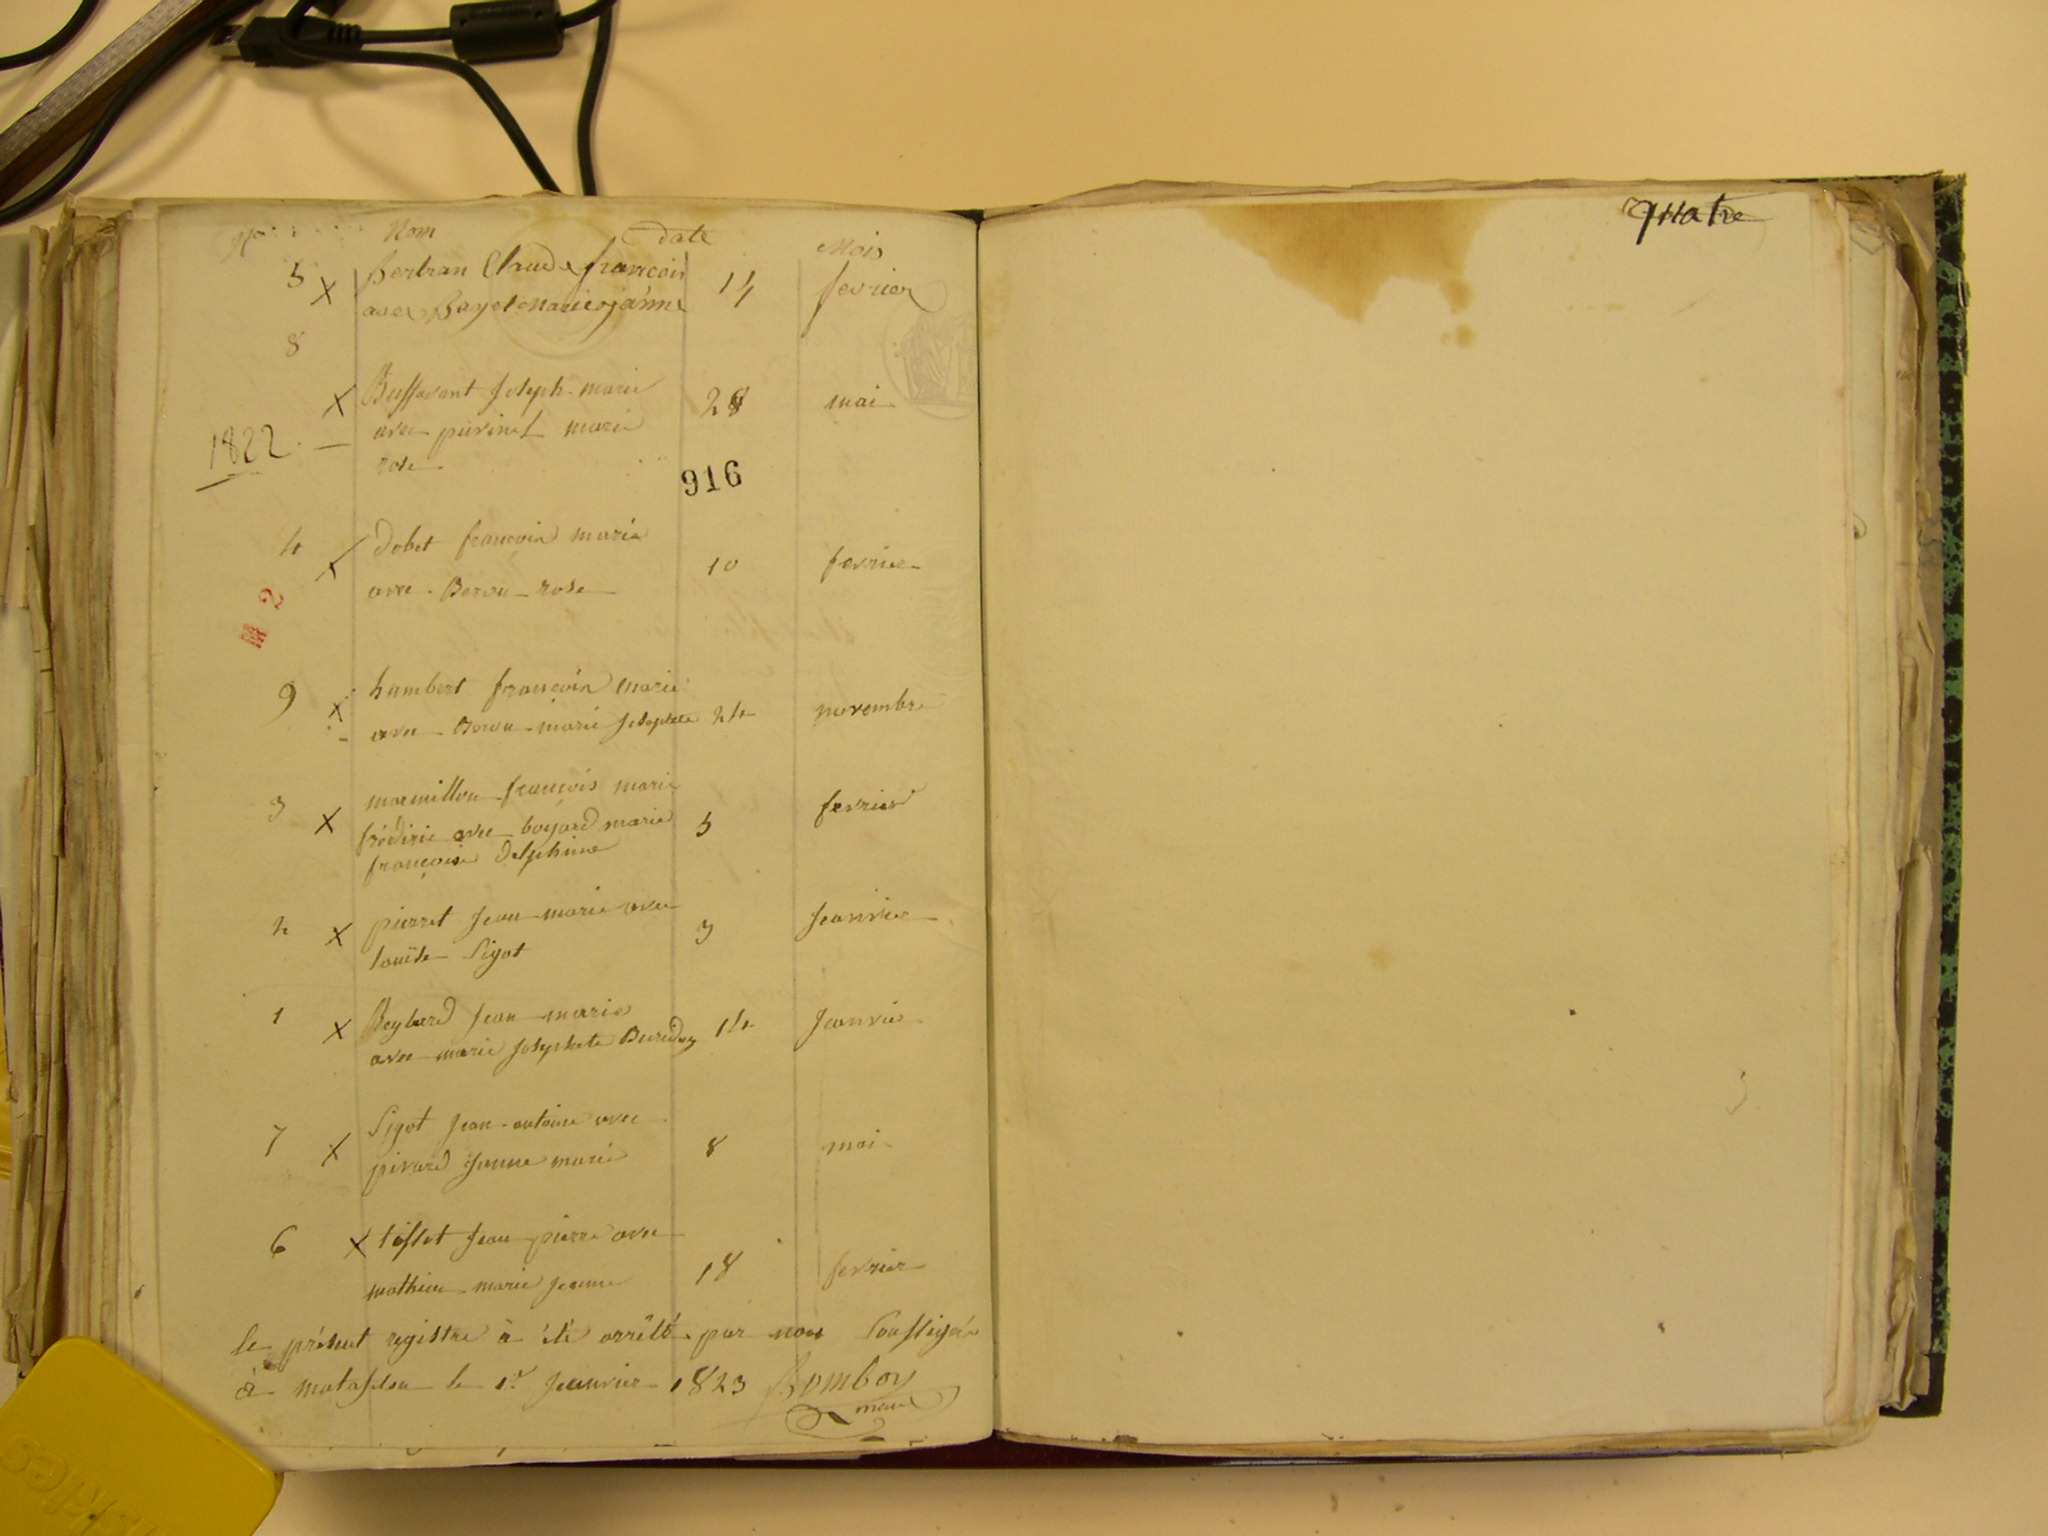 Nom date Mois
5 x Bertran Claude françois 14 fevrier
avec Bayet Marie jánne
8
x Buffavant Joseph marie 28 mai
1822. avec pierinet marie
rose
916
4 x Dobet françois marie 10 fevrier
avec Berou rose
M 2
9 x humbert françois marie
avec Berou marie Josephete 24 novembre
3 x marmillon françois marie fevrier
frédéric avec boyard marie 5
françoise Delphine
2 x pierret Jean marie avec 3 Jeanvier
louïse Sigot
1 x Reybard Jean marie 14 Janvier
avec marie Josephete Buridoz
7 x Sigot Jean antoine avec 8 mai
pivard Jeanne marie
6 x tissot Jean pierre avec
mathieu marie Jeanne 18 fevrier
le présent registre à été arrêté par nous Soussigné
à matafelon le 1.er Jeanvier 1823 Bomboy
maire
quatre